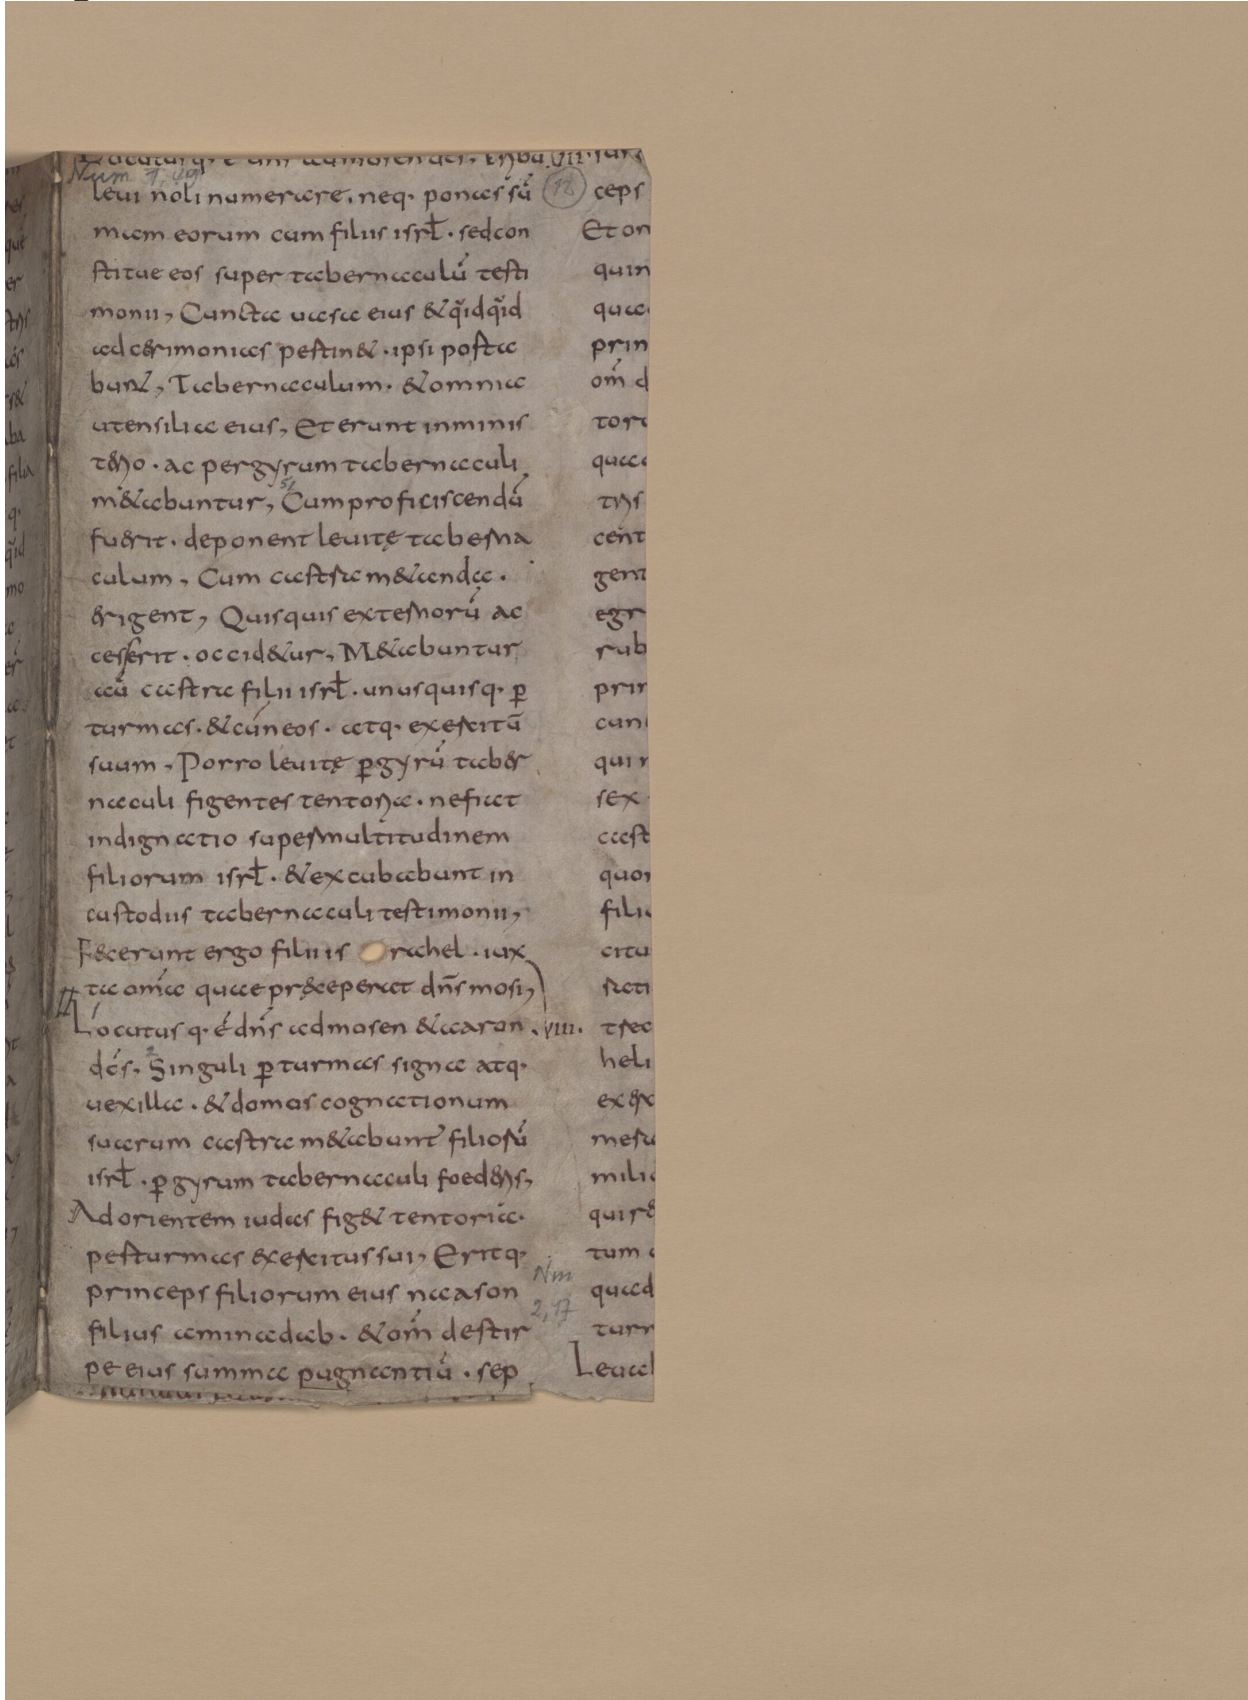 Num 1, 49
leui noli numerare. neq· ponas sū
mam eorum cum filiis isrł· sed con
stitue eos super tabernaculū testi
monii, Cuncta uasa eius & qͥdqͥd
ad cerimonias pertin&· ipsi porta
bunt, Tabernaculum· & omnia
utensilia eius, Et erunt in minis
terio· ac per gyrum tabernaculi
m&abuntur, Cum proficiscendū
51
fuerit· deponent leuitę taberna
culum, Cum castra m&andę·
erigent, Quisquis externorū ac
cesserit· occid&ur, M&abuntur
aū castra filii isrł· unusquisq· ꝑ
turmas· & cuneos· atq· exercitū
suum, Porro leuitę ꝑ gyrū taber
naculi figentes tentoria· ne fiat
indignatio super multitudinem
filiorum isrł· & excubabunt in
custodiis tabernaculi testimonii,
Fecerunt ergo filii is rahel· iux
ta om̄a quae preceperat dn̄s mosi,
Locutus q· ē dn̄s ad mosen & aaron ·VIII·
dc̄s, Singuli ꝑ turmas signa atq·
2
uexilla· & domus cognationum
suarum castra m&abunt filiorū
isrł· ꝑ gyrum tabernaculi foederis,
Ad orientem iudas fig& tentoria·
per turmas exercitus sui, Eritq·
princeps filiorum eius naason
filius aminadab· & om̄ de stir
pe eius summa pugnantiū· sep
12
ceps
Et om
quin
quae
prin
om̄ d
tori
quae
tris
cent
gent
egr
rub
prin
cun
qui r
sex
cast
quor
filio
citu
rati
trec
heli
ex ex
meru
milia
quir&
tum
quad
turr
Num
2, 17
Leuab